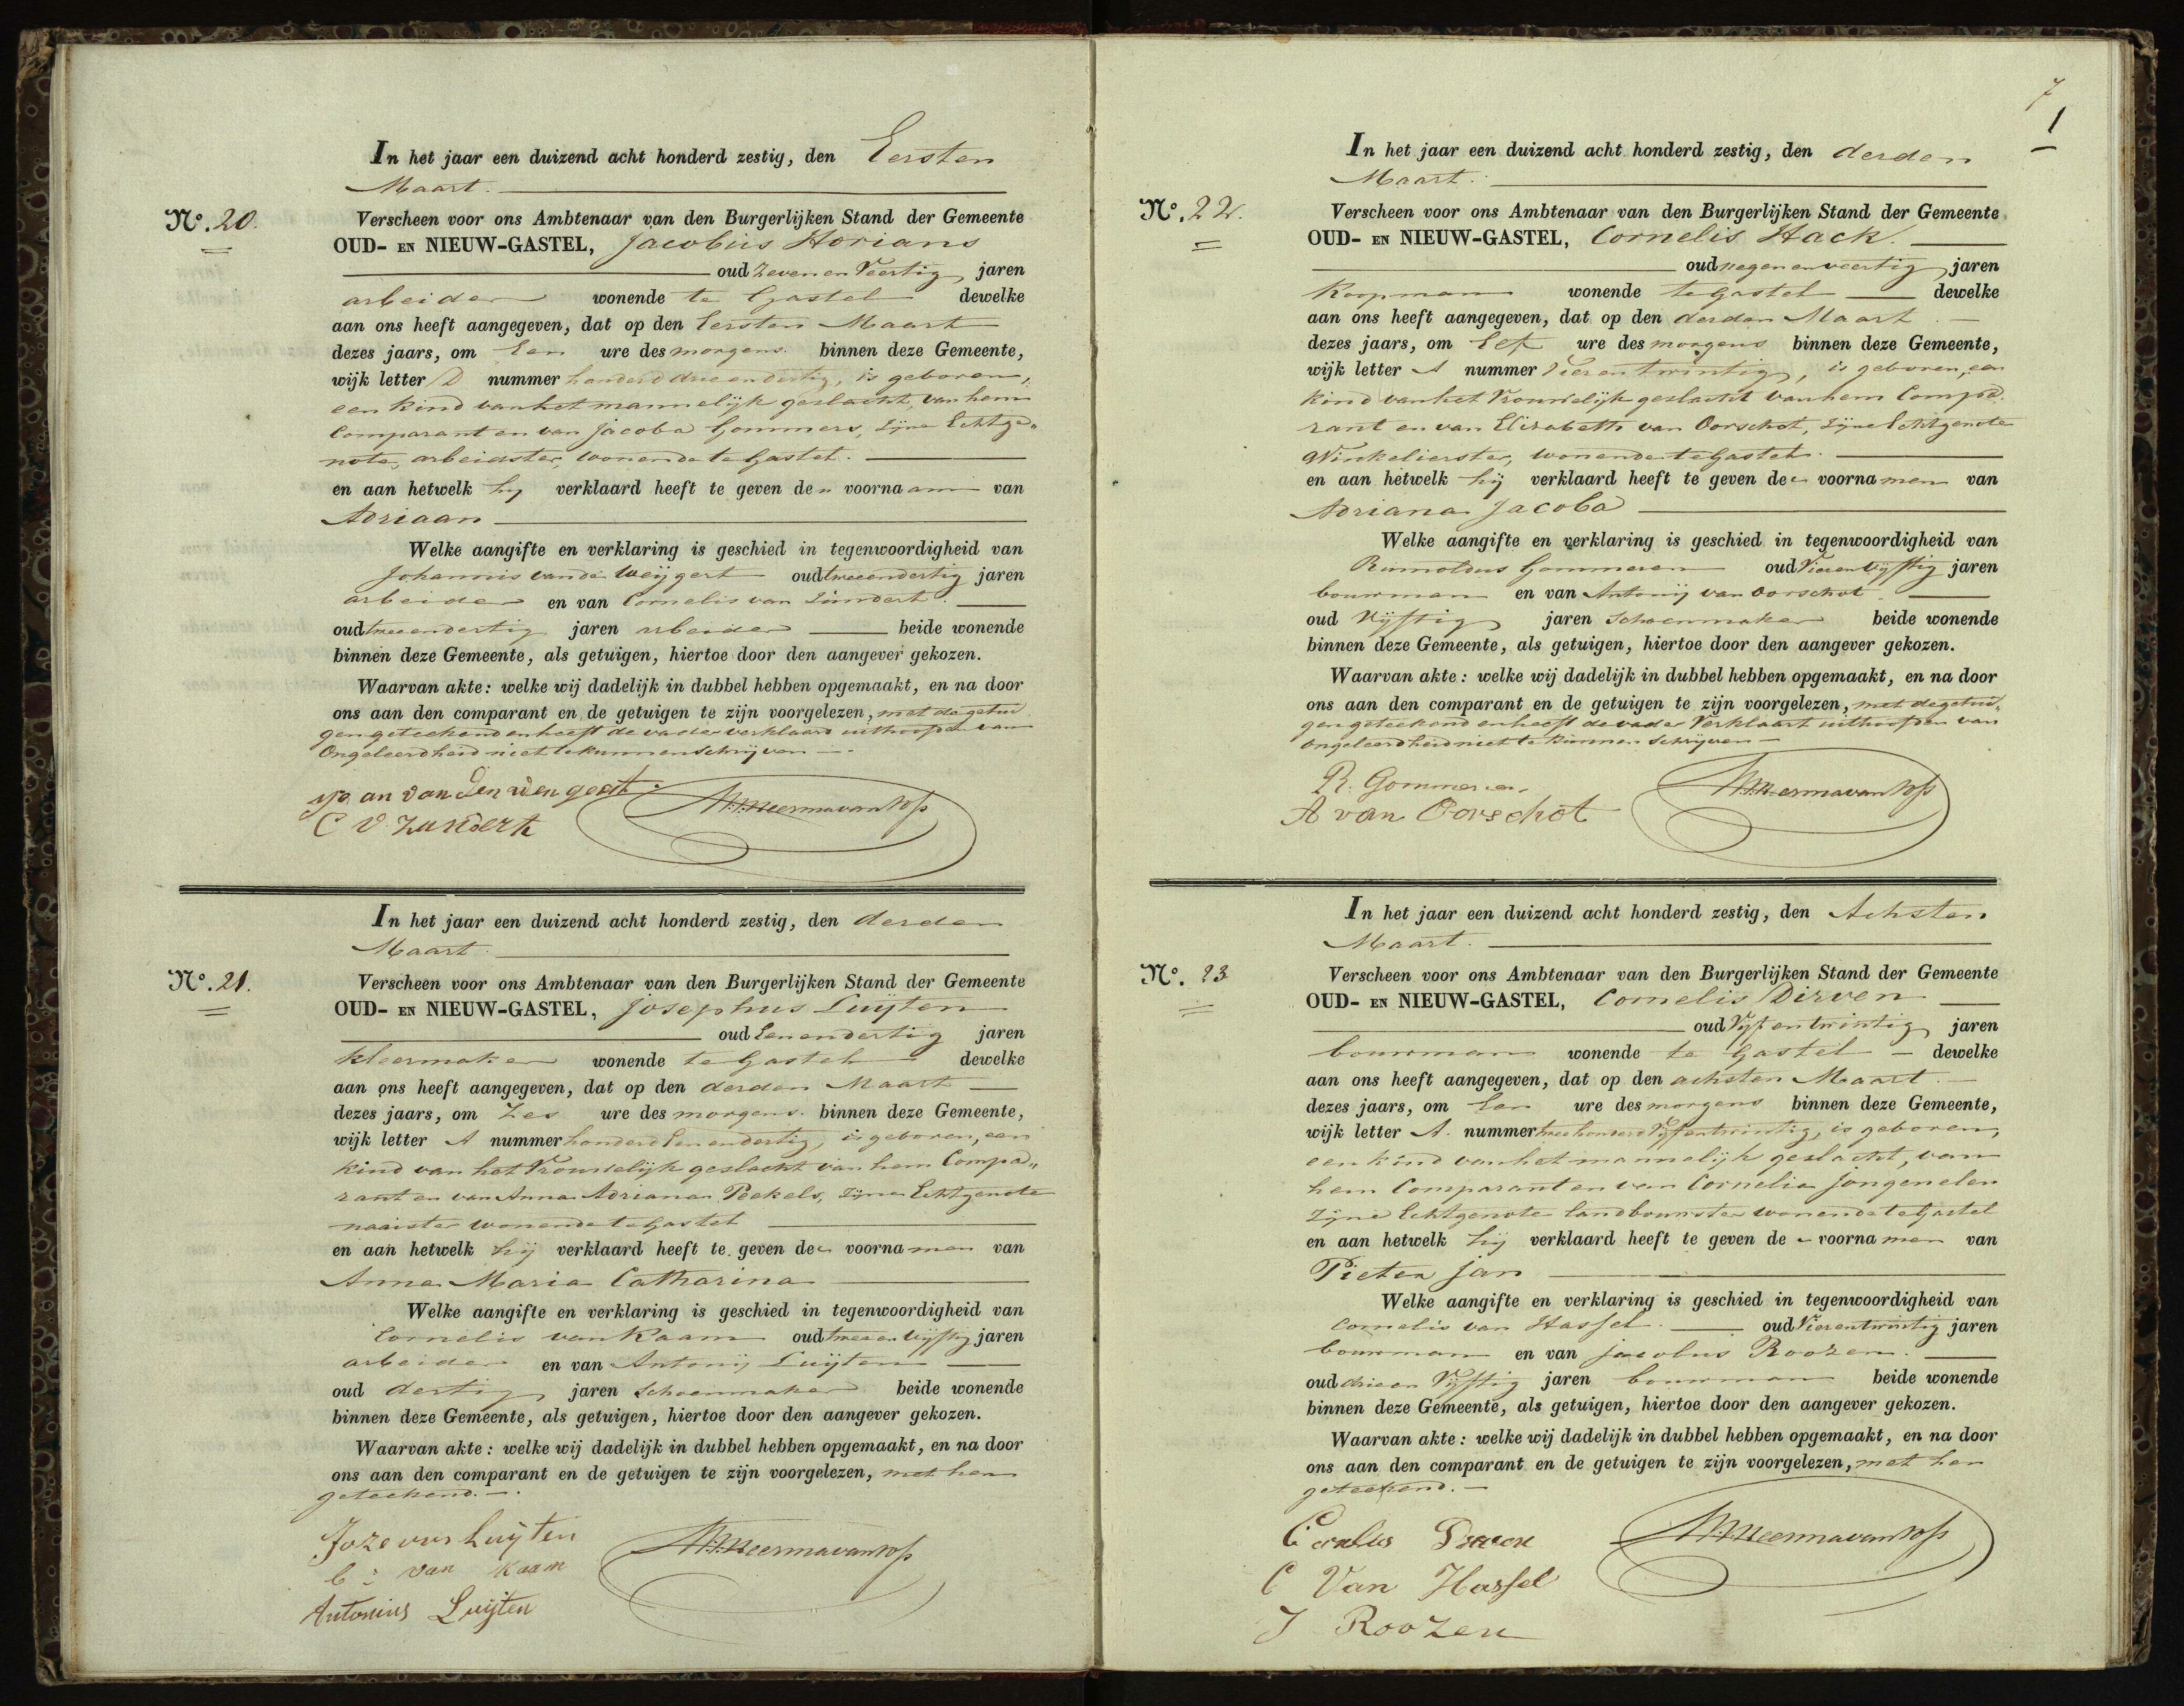 In het jaar een duizend acht honderd zestig, den Eersten
Maart.
No. 20.
Verscheen voor ons Ambtenaar van den Burgerlijken Stand der Gemeente
OUD- EN NIEUW-GASTEL, Jacobus Horians
oud zeven en Veertig jaren
arbeider wonende te Gastel dewelke
aan ons heeft aangegeven, dat op den Eersten Maart
dezes jaars, om Een ure des morgens binnen deze Gemeente,
wijk letter D nummer honderd drieendertig, is geboren,
een kind van het mannelijk geslacht, van hem
Comparant en van Jacoba Gommers, zijne Echtge„
note, arbeidster, wonende te Gastel.
en aan hetwelk hij verklaard heeft te geven den voornaam van
Adriaan
Welke aangifte en verklaring is geschied in tegenwoordigheid van
Johannis van de Weijgert oud tweeendertig jaren
arbeider en van Cornelis van Zundert.
oud tweeendertig jaren arbeider beide wonende
binnen deze Gemeente, als getuigen, hiertoe door den aangever gekozen.
Waarvan akte: welke wij dadelijk in dubbel hebben opgemaakt, en na door
ons aan den comparant en de getuigen te zijn voorgelezen, met de getui
gen geteekend en heeft de vader verklaard uithoofde van
Ongeleerdheid niet te kunnen schrijven.
C V Zundert
In het jaar een duizend acht honderd zestig, den derden
Maart.
No. 21.
Verscheen voor ons Ambtenaar van den Burgerlijken Stand der Gemeente
OUD- EN NIEUW-GASTEL, Josephus Luijten
oud Eenendertig jaren
kleermaker wonende te Gastel dewelke
aan ons heeft aangegeven, dat op den derden Maart
dezes jaars, om Zes ure des morgens. binnen deze Gemeente,
wijk letter A nummer honderd Eenendertig, is geboren, een
kind van het Vrouwelijk geslacht van hem Compa„
rant en van Anna Adriana Peekels, zijne Echtgenote
naaister wonende te Gastel
en aan hetwelk hij verklaard heeft te geven de voornamen van
Anna Maria Catharina
Welke aangifte en verklaring is geschied in tegenwoordigheid van
Cornelis van Kaam oud tweeen Vijftig jaren
arbeider en van Antonij Luijten
oud dertig jaren Schoenmaker beide wonende
binnen deze Gemeente, als getuigen, hiertoe door den aangever gekozen.
Waarvan akte: welke wij dadelijk in dubbel hebben opgemaakt, en na door
ons aan den comparant en de getuigen te zijn voorgelezen, met hen
geteekend.
Jozevus Luijten
C: van Kaam
Antonius Luijten
7
1
In het jaar een duizend acht honderd zestig, den derden
Maart.
No. 22.
Verscheen voor ons Ambtenaar van den Burgerlijken Stand der Gemeente
OUD- EN NIEUW-GASTEL, Cornelis Hack.
oud negen en veertig jaren
Koopman wonende te Gastel dewelke
aan ons heeft aangegeven, dat op den derden Maart.
dezes jaars, om Elf ure des morgens binnen deze Gemeente,
wijk letter A nummer Vierentwintig, is geboren, een
kind van het Vrouwelijk geslacht van hem Compa
rant en van Elizabeth van Oorschot, zijne Echtgenote
Winkelierster, wonende te Gastel.
en aan hetwelk hij verklaard heeft te geven de voornamen van
Adriana Jacoba
Welke aangifte en verklaring is geschied in tegenwoordigheid van
Gommeren oud Vierenvijftig jaren
bouwman en van Antonij van Oorschot
oud Vijftig jaren Schoenmaker beide wonende
binnen deze Gemeente, als getuigen, hiertoe door den aangever gekozen.
Waarvan akte: welke wij dadelijk in dubbel hebben opgemaakt, en na door
ons aan den comparant en de getuigen te zijn voorgelezen, met de getui„
gen geteekend en heeft de vader Verklaart uithoofde van
ongeleerdheid niet te kunnen schrijven
R. Gommeren
A van Oorschot
In het jaar een duizend acht honderd zestig, den Achsten
Maart.
No. 23
Verscheen voor ons Ambtenaar van den Burgerlijken Stand der Gemeente
OUD- EN NIEUW-GASTEL, Cornelis Dirven
oud Vijfentwintig jaren
bouwman wonende te Gastel dewelke
aan ons heeft aangegeven, dat op den achsten Maart.
dezes jaars, om Een ure des morgens binnen deze Gemeente,
wijk letter A. nummer twee honderd Vijfentwintig, is geboren,
een kind van het mannelijk geslacht, van
hem Comparant en van Cornelia Jongenelen
zijne Echtgenote landbouwster wonende te Gastel
en aan hetwelk hij verklaard heeft te geven de voornamen van
Pieter Jan
Welke aangifte en verklaring is geschied in tegenwoordigheid van
Cornelis van Hassel. oud Vierentwintig jaren
bouwman en van Jacobus Roozen.
oud drieen Vijftig jaren bouwman beide wonende
binnen deze Gemeente, als getuigen, hiertoe door den aangever gekozen.
Waarvan akte: welke wij dadelijk in dubbel hebben opgemaakt, en na door
ons aan den comparant en de getuigen te zijn voorgelezen, met hen
geteekend.
C Van Hassel
J Roozen